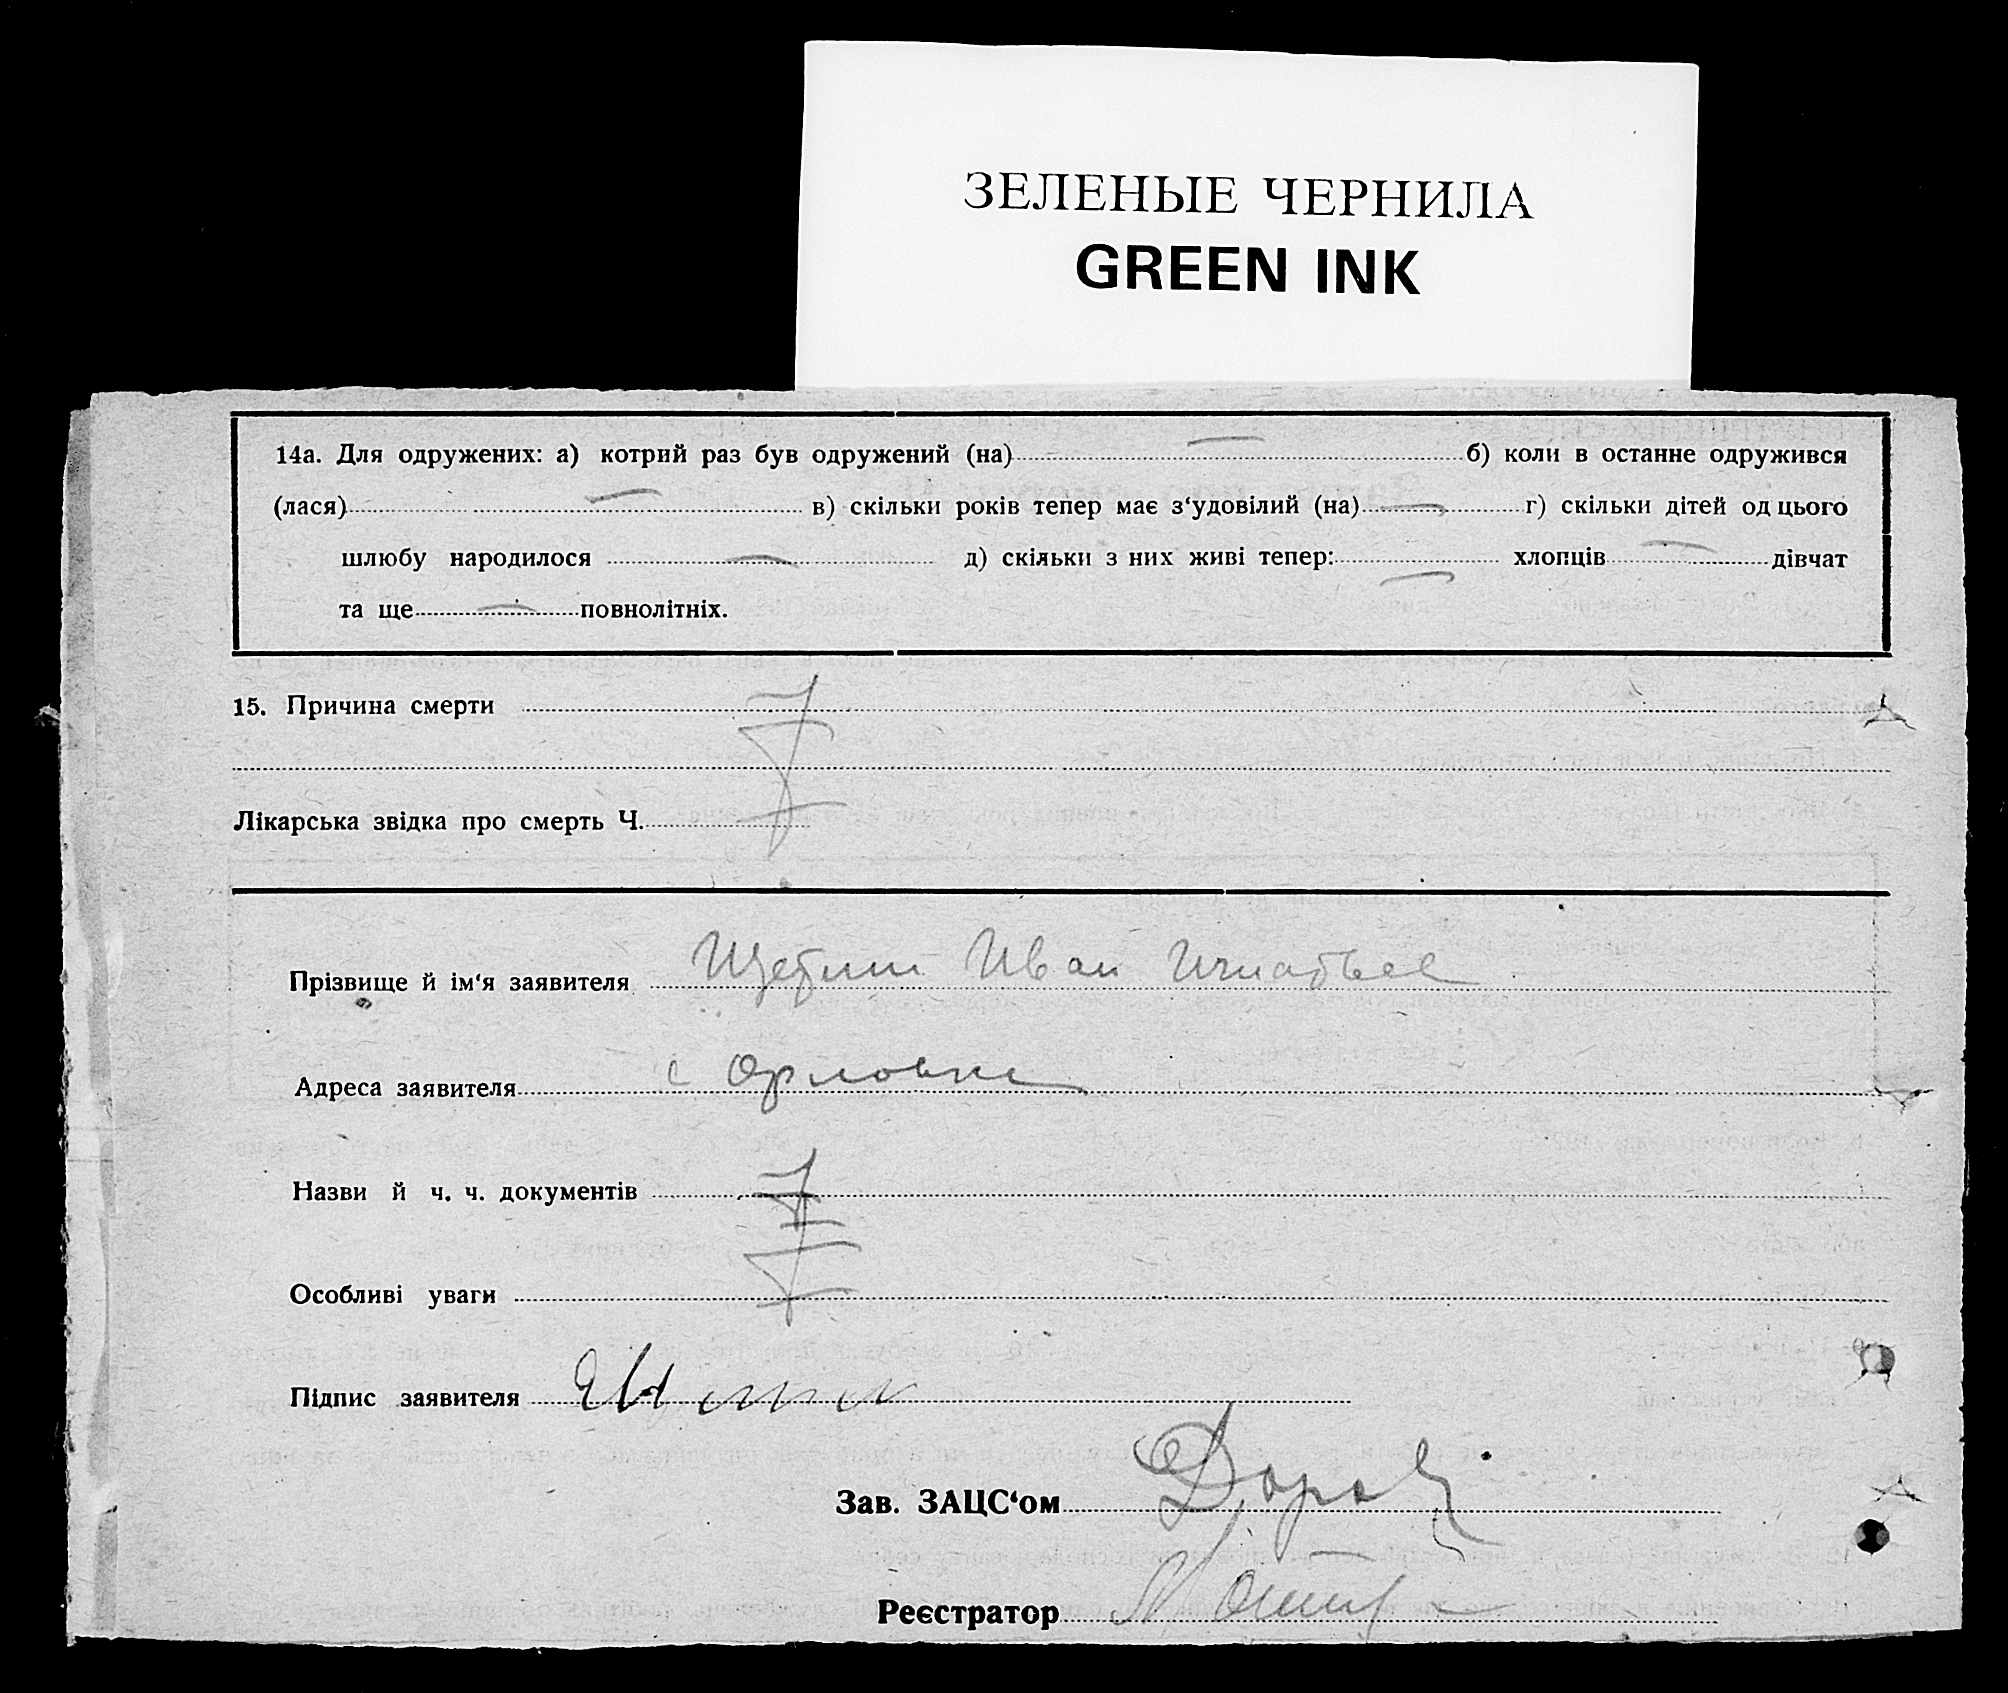 ЗЕЛЕНЫЕ ЧЕРНИЛА
GREEN INK
14а. Для одружених: а) котрий раз був одружений (на) — б) коли в останнє одружився
(лася) — в) скільки років тепер має з‘удовілий (на) — г) скільки дітей од цього
шлюбу народилося — д) скільки з них живі тепер: — хлопців — дівчат
та ще — повнолітніх.
15. Причина смерти
Лікарська звідка про смерть Ч.
Прізвище й ім‘я заявителя Иван
Адреса заявителя с Орловка
Назви й ч. ч. документів
Особливі уваги
Підпис заявителя
Зав. ЗАЦС‘ом
Реєстратор